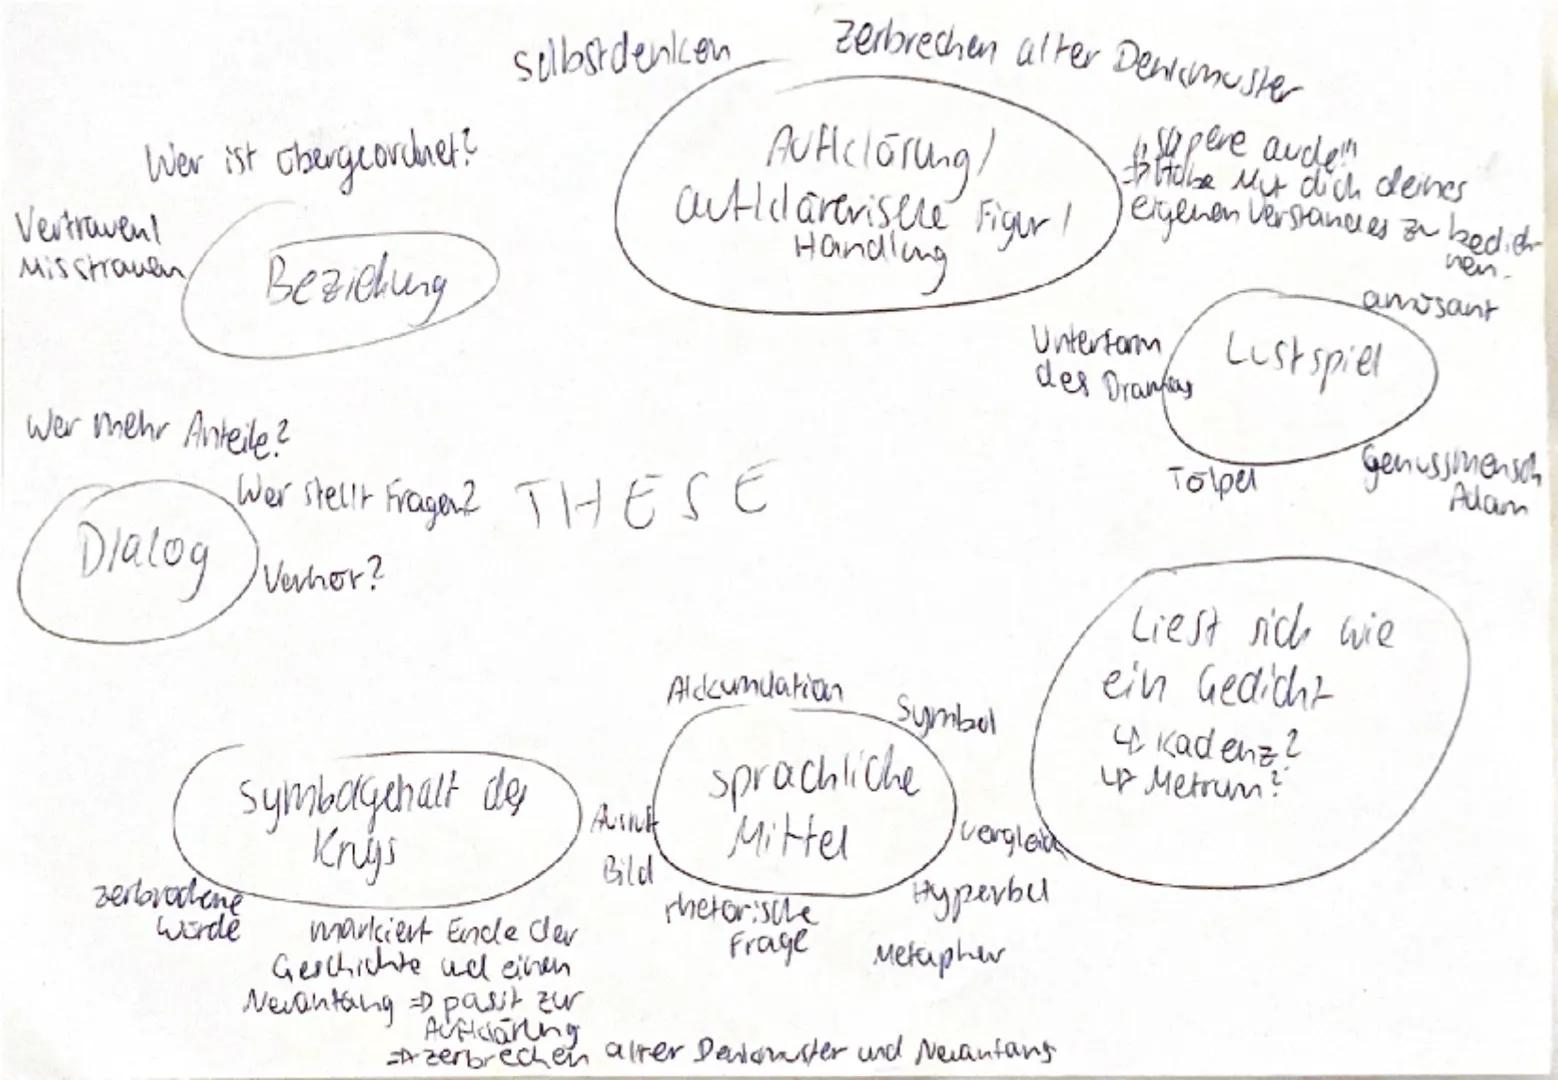 selbstdenken
Zerbrechen alter Denkmuster
Aufklärung/
aufklärerische Figur/
Handlung
"sapere aude!"
=> Habe Mut dich deines
eigenen Verstandes zu bedie-
nen.
Wer ist übergeordnet?
Vertrauen/
Misstrauen
Beziehung
amüsant
Unterform
des Dramas
Lustspiel
Tölpel
Genussmensch
Adam
Wer mehr Anteile?
Wer stellt Fragen?
Dialog
Verhör?
THESE
Liest sich wie
ein Gedicht
↳ Kadenz?
↳ Metrum?
Akkumulation
Symbol
sprachliche
Mittel
Ausruf
Bild
Vergleich
rhetorische
Frage
Hyperbel
Metapher
Symbolgehalt des
Krugs
zerbrochene
Würde
markiert Ende der
Geschichte und einen
Neuanfang => passt zur
Aufklärung
=> zerbrechen alter Denkmuster und Neuanfang